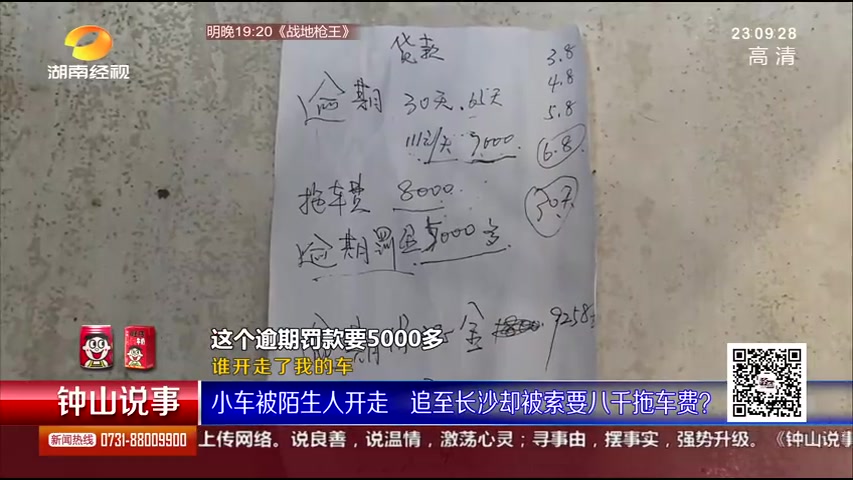 明晚19:20《战地枪王》
23:09:28
高清
湖南经视
贷款
3.8
4.8
5.8
6.8
逾期 30天.65天
30天
拖车费 8000
逾期罚金 5000多
9258
这个逾期罚款要5000多
谁开走了我的车
钟山说事
小车被陌生人开走 追至长沙却被索要八千拖车费?
新闻热线 0731-88009900
上传网络。说良善，说温情，激荡心灵；寻事由，摆事实，强势升级。《钟山说事